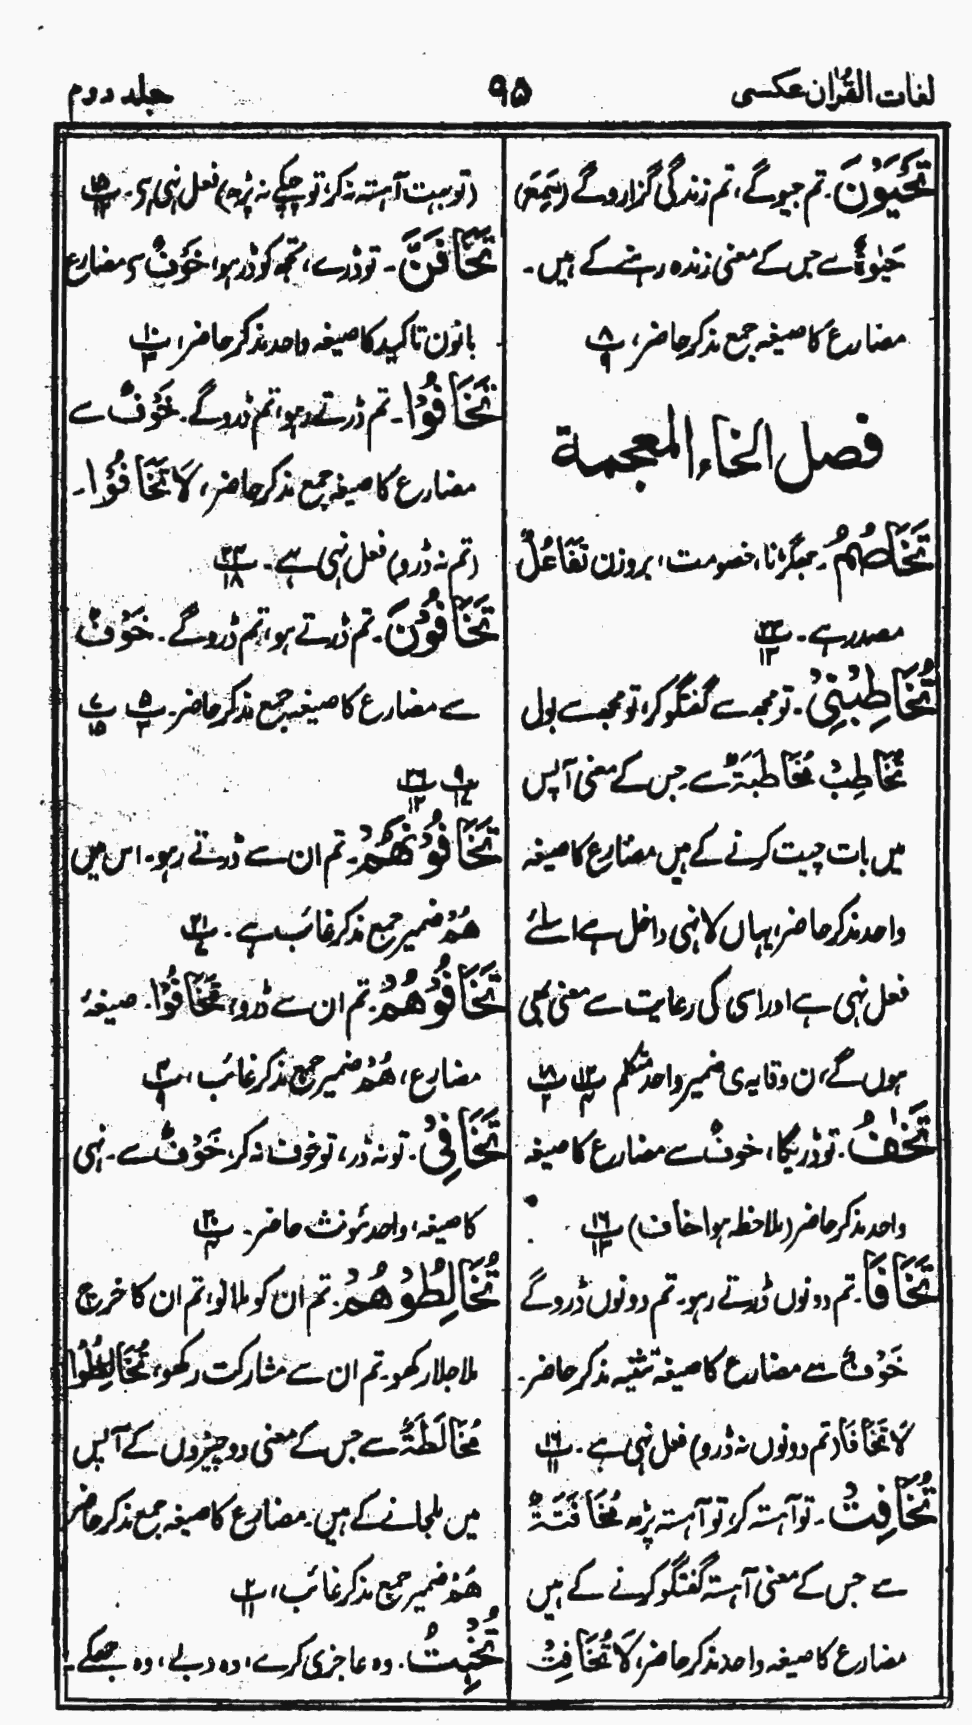 لغات القرآن عکسی
۹۵
جلد دوم
تَحْیَوْنَ۔ تم جیوگے، تم زندگی گزاروگے (سَمِعَ)
حَیٰوۃٌ سے جس کے معنی زندہ رہنے کے ہیں۔
مضارع کا صیغہ جمع مذکر حاضر، پ ۸ ۹
فصل الخاء المعجمة
تَخَاصُمُ۔ جھگڑنا، خصومت، بروزن تَفَاعُلٌ
مصدر ہے۔ پ ۲۳ ۱۳
تُخَاطِبْنِیْ۔ تو مجھ سے گفتگو کر، تو مجھ سے بول
تُخَاطِبُ مُخَاطَبَۃٌ سے جس کے معنی آپس
میں بات چیت کرنے کے ہیں مضارع کا صیغہ
واحد مذکر حاضر، یہاں لا نہی داخل ہے اسلئے
فعل نہی ہے اور اسی کی رعایت سے معنی بھی
ہوں گے، ن وقایہ ی ضمیر واحد متکلم پ ۱۲ ۴ پ ۱۸ ۲
تَخٰفُ۔ تو ڈریگا، خوفٌ سے مضارع کا صیغہ
واحد مذکر حاضر (ملاحظہ ہو اخاف) پ ۱۶ ۱۳
تَخَافَا۔ تم دونوں ڈرتے رہو۔ تم دونوں ڈروگے
خَوْفٌ سے مضارع کا صیغہ تثنیہ مذکر حاضر۔
لَا تَخَافَا (تم دونوں نہ ڈرو) فعل نہی ہے۔ پ ۱۶ ۱۱
تُخَافِتْ۔ تو آہستہ کر، تو آہستہ پڑھ مُخَافَتَۃٌ
سے جس کے معنی آہستہ گفتگو کرنے کے ہیں
مضارع کا صیغہ واحد مذکر حاضر، لَا تُخَافِتْ
(تو بہت آہستہ نہ کر، تو چپکے نہ پڑھ) فعل نہی ہے۔ پ ۱۵ ۱۲
تَخَافَنَّ۔ تو ڈرے، تجھ کو ڈر ہو، خَوْفٌ سے مضارع
بانون تاکید کا صیغہ واحد مذکر حاضر، پ ۱۰ ۳
تَخَافُوْا۔ تم ڈرتے رہو، تم ڈروگے۔ خَوْفٌ سے
مضارع کا صیغہ جمع مذکر حاضر، لَا تَخَافُوْا۔
(تم نہ ڈرو) فعل نہی ہے۔ پ ۲۴ ۱۸
تَخَافُوْنَ۔ تم ڈرتے ہو، تم ڈروگے۔ خَوْفٌ
سے مضارع کا صیغہ جمع مذکر حاضر۔ پ ۵ ۳ پ ۷ ۱۵
پ ۹ ۱۷ پ ۲۶ ۱۲
تَخَافُوْنَهُمْ۔ تم ان سے ڈرتے رہو۔ اس میں
هُمْ ضمیر جمع مذکر غائب ہے۔ پ ۲۱ ۷
تَخَافُوْهُمْ۔ تم ان سے ڈرو، تَخَافُوْا۔ صیغۂ
مضارع، هُمْ ضمیر جمع مذکر غائب، پ ۴ ۹
تَخَافِیْ۔ تو نہ ڈر، تو خوف نہ کر، خَوْفٌ سے۔ نہی
کا صیغہ، واحد مؤنث حاضر۔ پ ۲۰ ۴
تُخَالِطُوْهُمْ۔ تم ان کو ملا لو، تم ان کا خرچ
ملا جلا رکھو۔ تم ان سے مشارکت رکھو، تُخَالِطُوْا
مُخَالَطَۃٌ سے جس کے معنی دو چیزوں کے آپس
میں ملجانے کے ہیں۔ مضارع کا صیغہ جمع مذکر حاضر
هُمْ ضمیر جمع مذکر غائب، پ ۲ ۱۱
تُخْبِتُ۔ وہ عاجزی کرے، وہ دبے، وہ جھکے۔